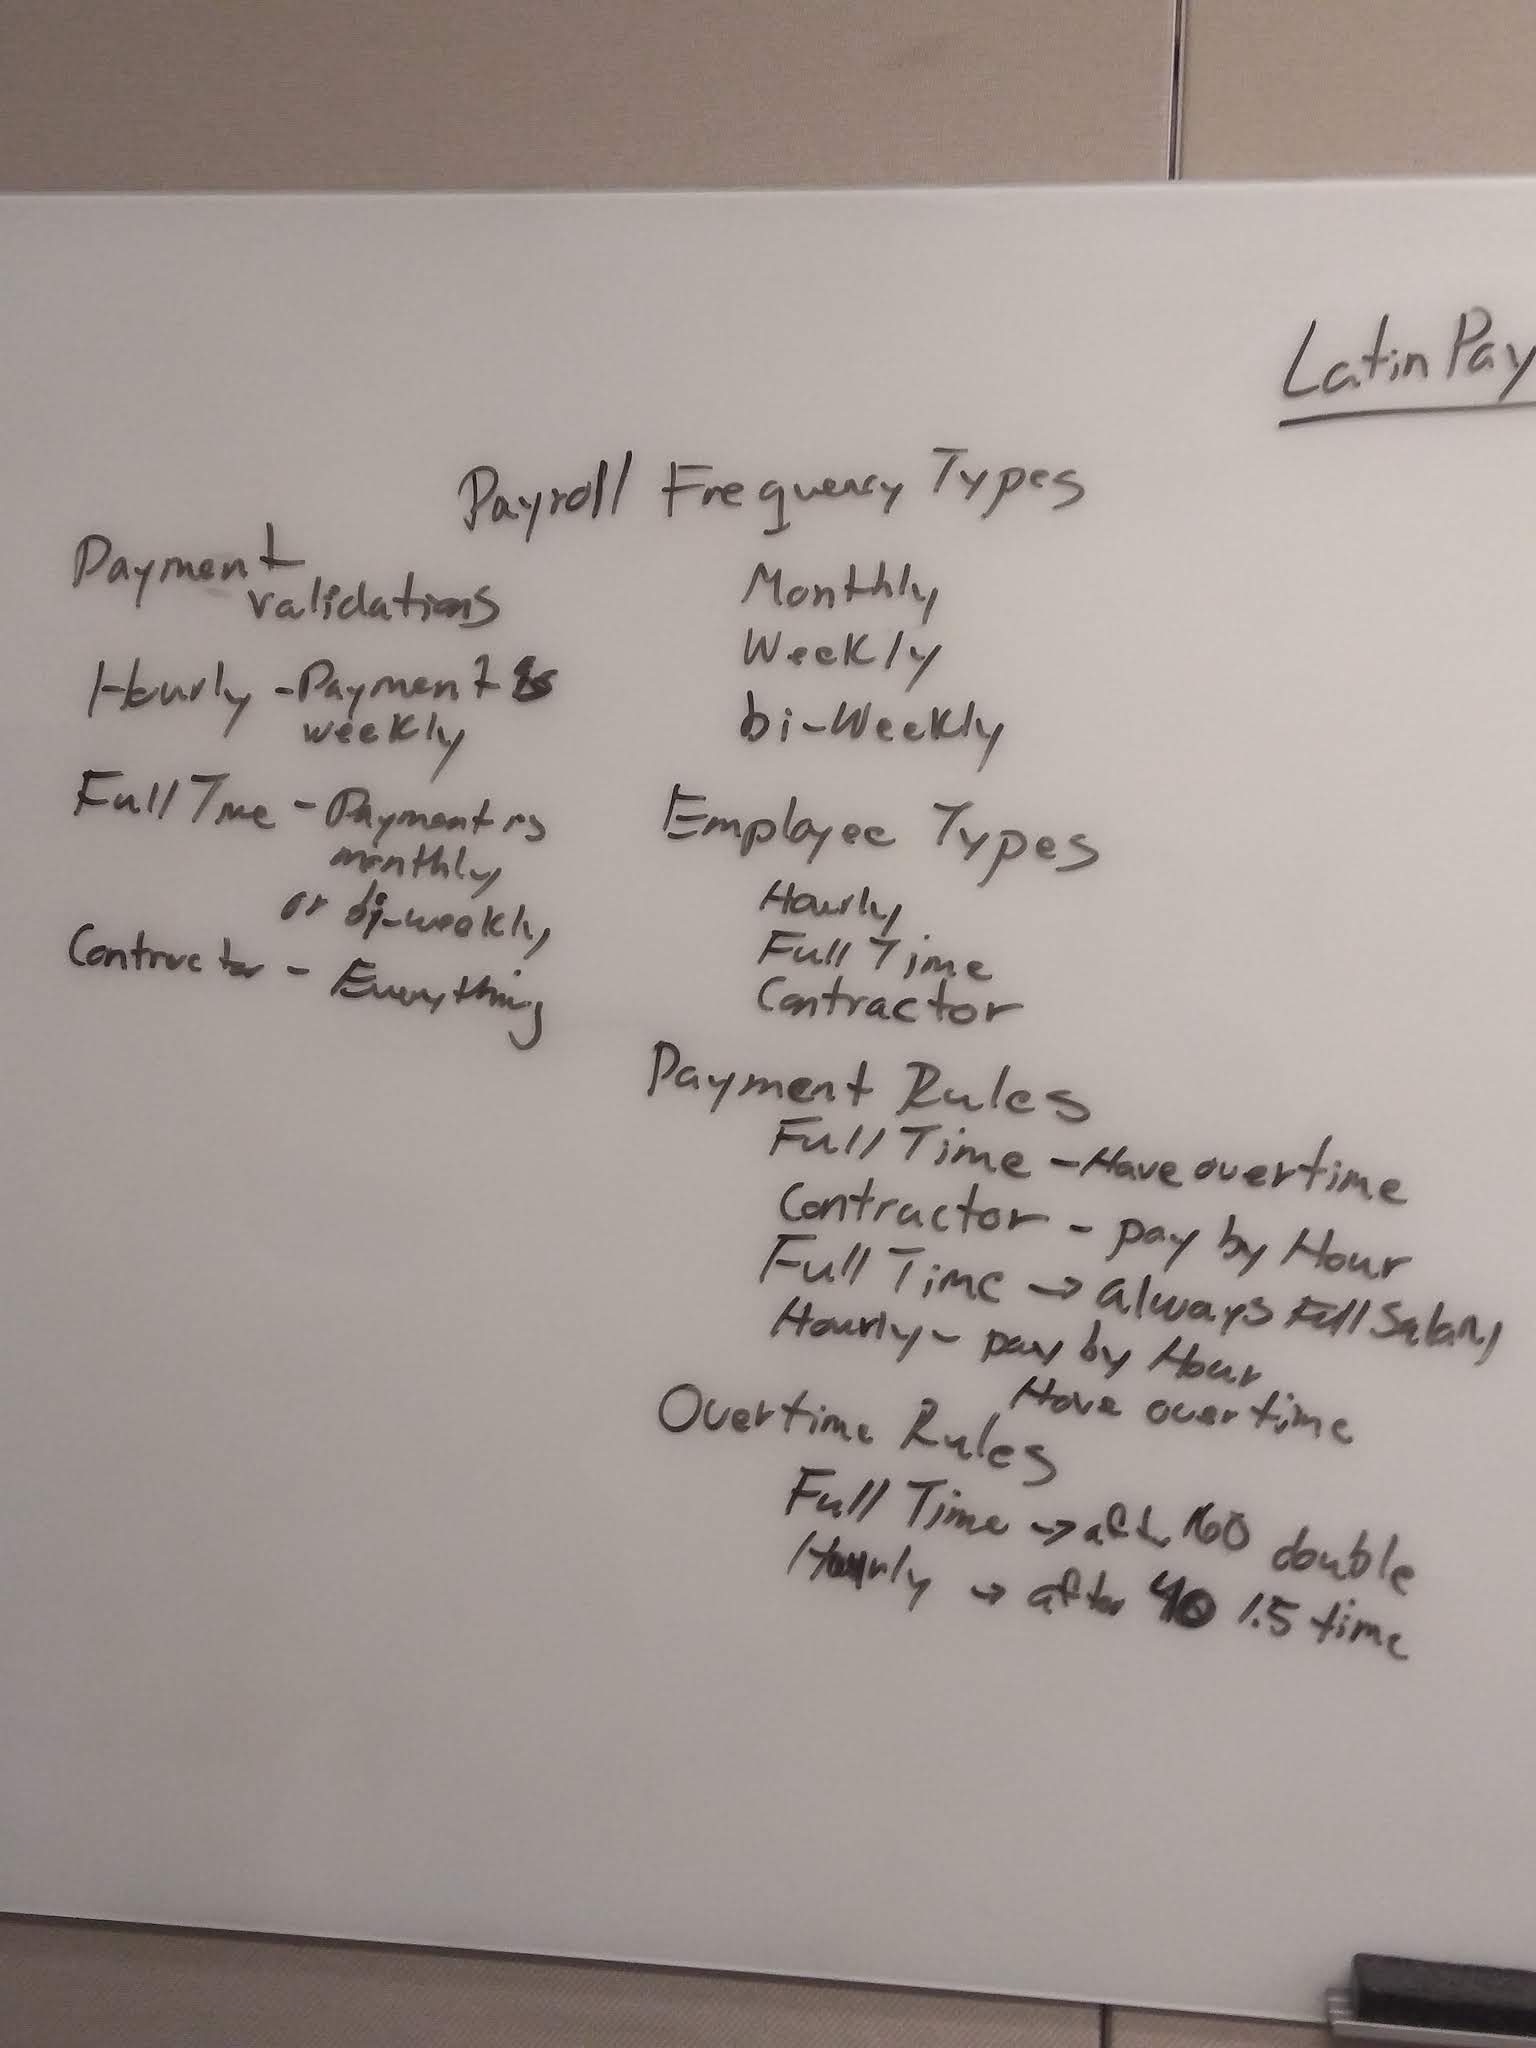 LatinPay
Payroll Frequency Types
Monthly
Weekly
bi-Weekly
Payment
validations
Hourly - Payment is
weekly
Full Tme - Payment is
monthly
or bi-weekly
Contructor - Everything
Employee Types
Hourly
Full Time
Contractor
Payment Rules
Full Time - Have overtime
Contractor - pay by Hour
Full Time → always Full Salary
Hourly - pay by Hour
Have overtime
Overtime Rules
Full Time → after 160 double
Hourly → after 40 1.5 time